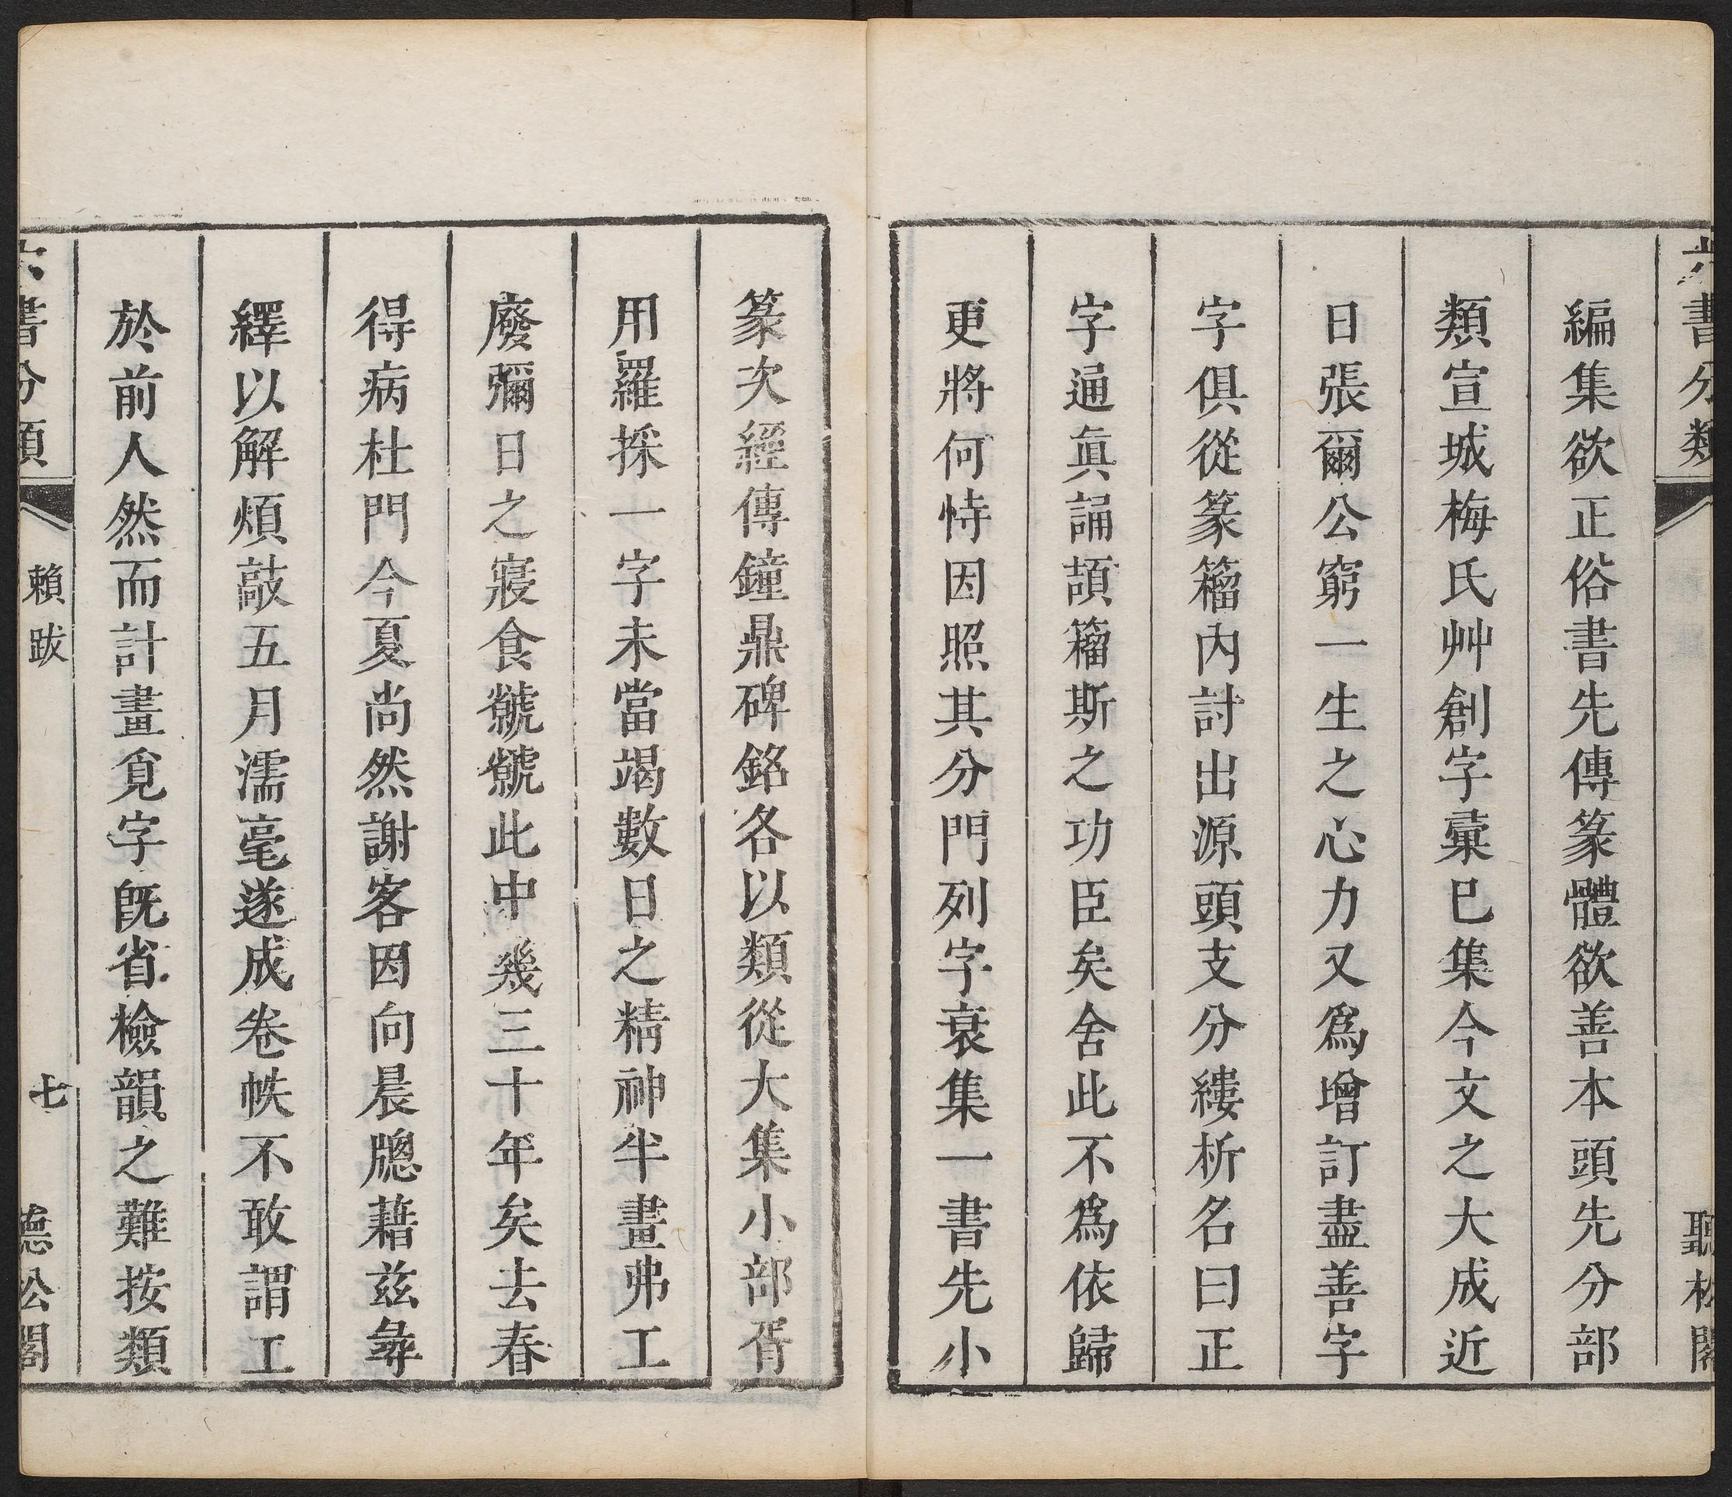 六書分類
聽松閣
編集欲正俗書先傳篆體欲善本頭先分部
類宣城梅氏艸創字彙已集今文之大成近
日張爾公窮一生之心力又爲增訂盡善字
字俱從篆籀內討出源頭支分縷析名曰正
字通眞誦頡籀斯之功臣矣舍此不爲依歸
更將何恃因照其分門列字裒集一書先小
篆次經傳鐘鼎碑銘各以類從大集小部胥
用羅採一字未當竭數日之精神半畫弗工
廢彌日之寢食虩虩此中幾三十年矣去春
得病杜門今夏尚然謝客因向晨牕藉兹彜
繹以解煩敲五月濡毫遂成卷帙不敢謂工
於前人然而計畫覓字旣省檢韻之難按類
六書分類
賴跋
七
聽松閣